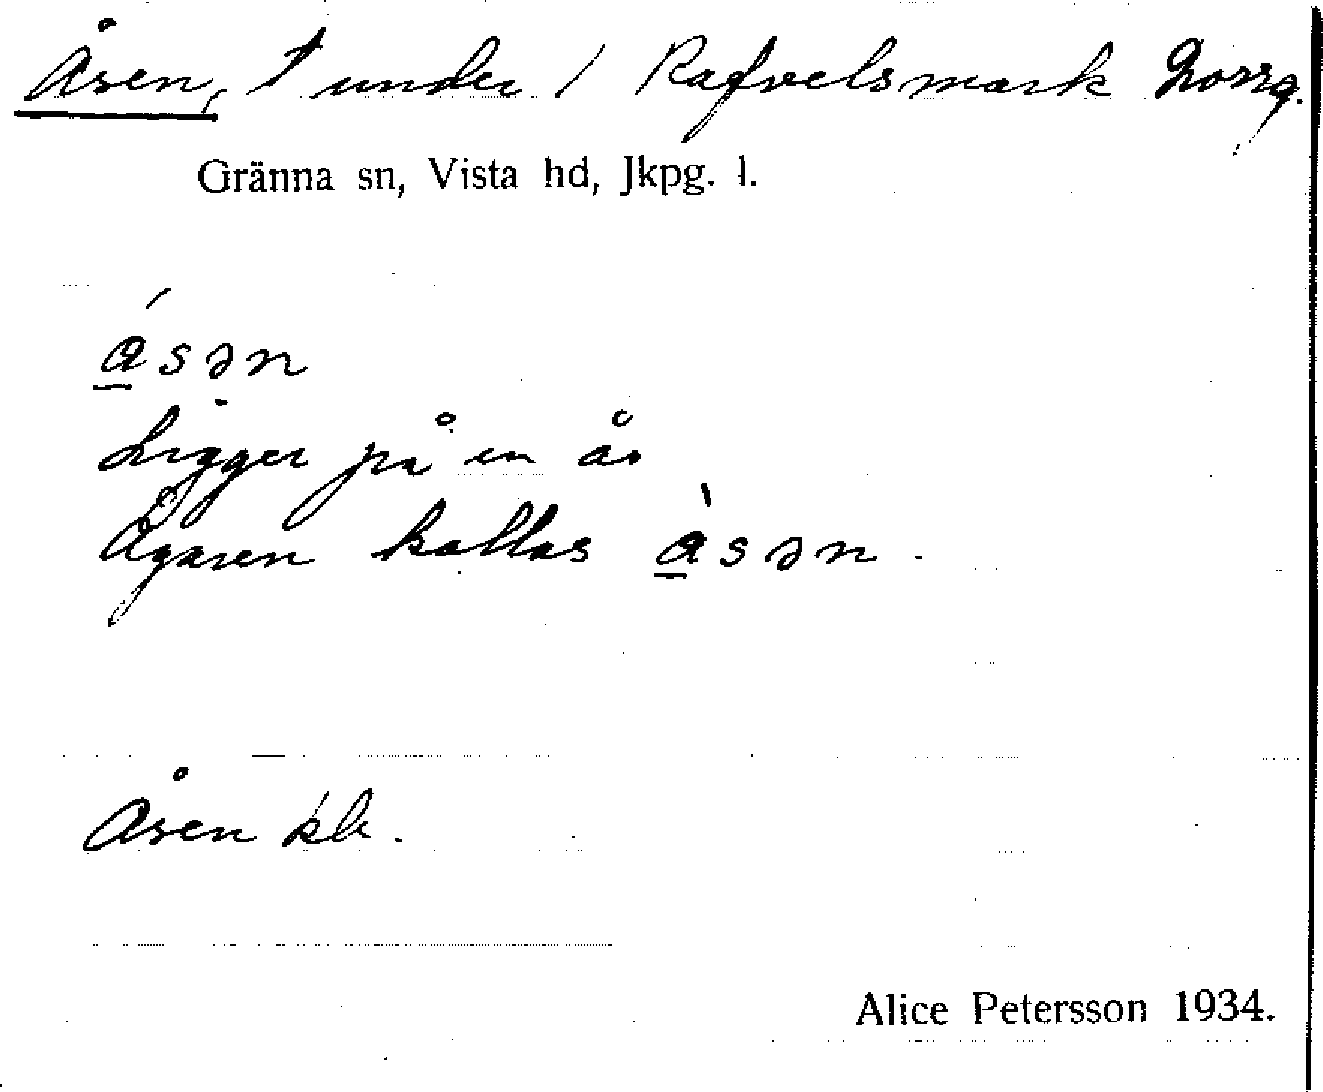 Åsen, t under 1 Rafvelsmark Norrg.
Gränna sn, Vista hd, Jkpg. l.
á̲sən
Ligger på en ås
Ägaren kallas à̲sən.
Åsen kb.
Alice Petersson 1934.